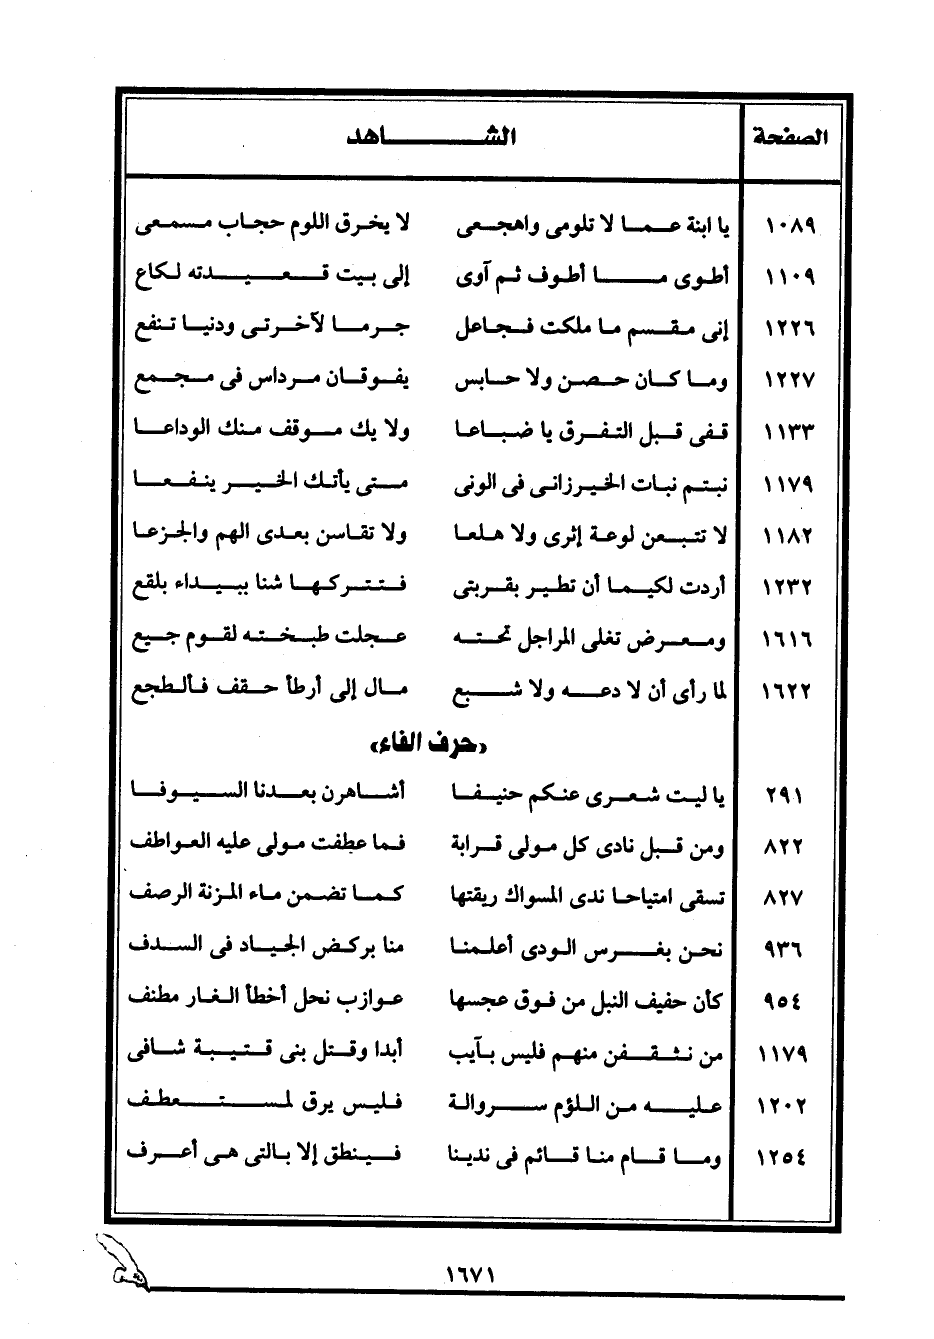 الصفحة الشاهد
١٠٨٩ يا ابنة عما لا تلومى واهجعى لا يخرق اللوم حجاب مسمعى
١١٠٩ أطوى ما أطوف ثم آوى إلى بيت قعيدته لكاع
١٢٢٦ إنى مقسم ما ملكت فجاعل جرما لآخرتى ودنيا تنفع
١٢٢٧ وما كان حصن ولا حابس يفوقان مرداس فى مجمع
١١٣٣ قفى قبل التفرق يا ضباعا ولا يك موقف منك الوداعا
١١٧٩ نبتم نبات الخيزرانى فى الونى متى يأتك الخير ينفعا
١١٨٢ لا تتبعن لوعة إثرى ولا هلعا ولا تقاسن بعدى الهم والجزعا
١٢٣٢ أردت لكيما أن تطير بقربتى فتتركها شنا ببيداء بلقع
١٦١٦ ومعرض تغلى المراجل تحته عجلت طبخته لقوم جيع
١٦٢٢ لما رأى أن لا دعه ولا شبع مال إلى أرطأ حقف فألطجع
«حرف الفاء»
٢٩١ يا ليت شعرى عنكم حنيفا أشاهرن بعدنا السيوفا
٨٢٢ ومن قبل نادى كل مولى قرابة فما عطفت مولى عليه العواطف
٨٢٧ تسقى امتياحا ندى المسواك ريقتها كما تضمن ماء المزنة الرصف
٩٣٦ نحن بغرس الودى أعلمنا منا بركض الجياد فى السدف
٩٥٤ كأن حفيف النبل من فوق عجسها عوازب نحل أخطأ الغار مطنف
١١٧٩ من نثقفن منهم فليس بآيب أبدا وقتل بنى قتيبة شافى
١٢٠٢ عليه من اللؤم سروالة فليس يرق لمستعطف
١٢٥٤ وما قام منا قائم فى ندينا فينطق إلا بالتى هى أعرف
١٦٧١